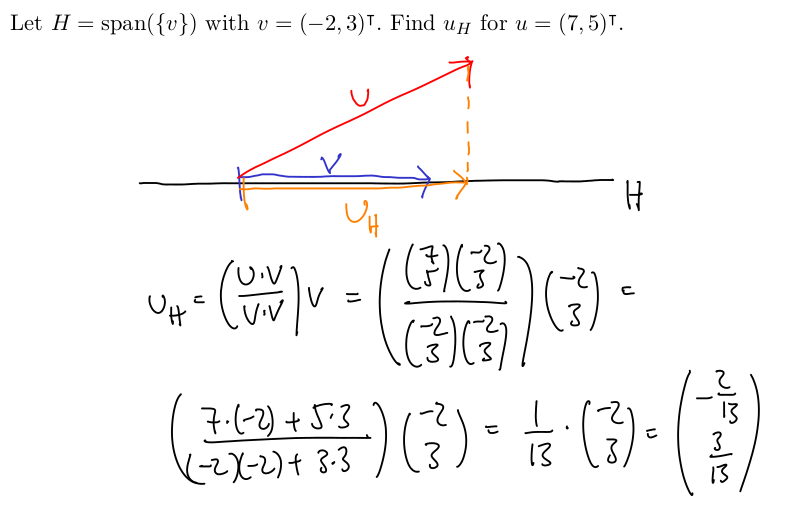 Let H = span({v}) with v = (−2, 3)ᵀ. Find u_H for u = (7, 5)ᵀ.
U
V
H
U_H
U_H = (U·V / V·V) V = ((7 5)(-2 3) / (-2 3)(-2 3)) (-2 3) =
(7·(-2) + 5·3 / (-2)(-2) + 3·3) (-2 3) = 1/13 · (-2 3) = (-2/13 3/13)